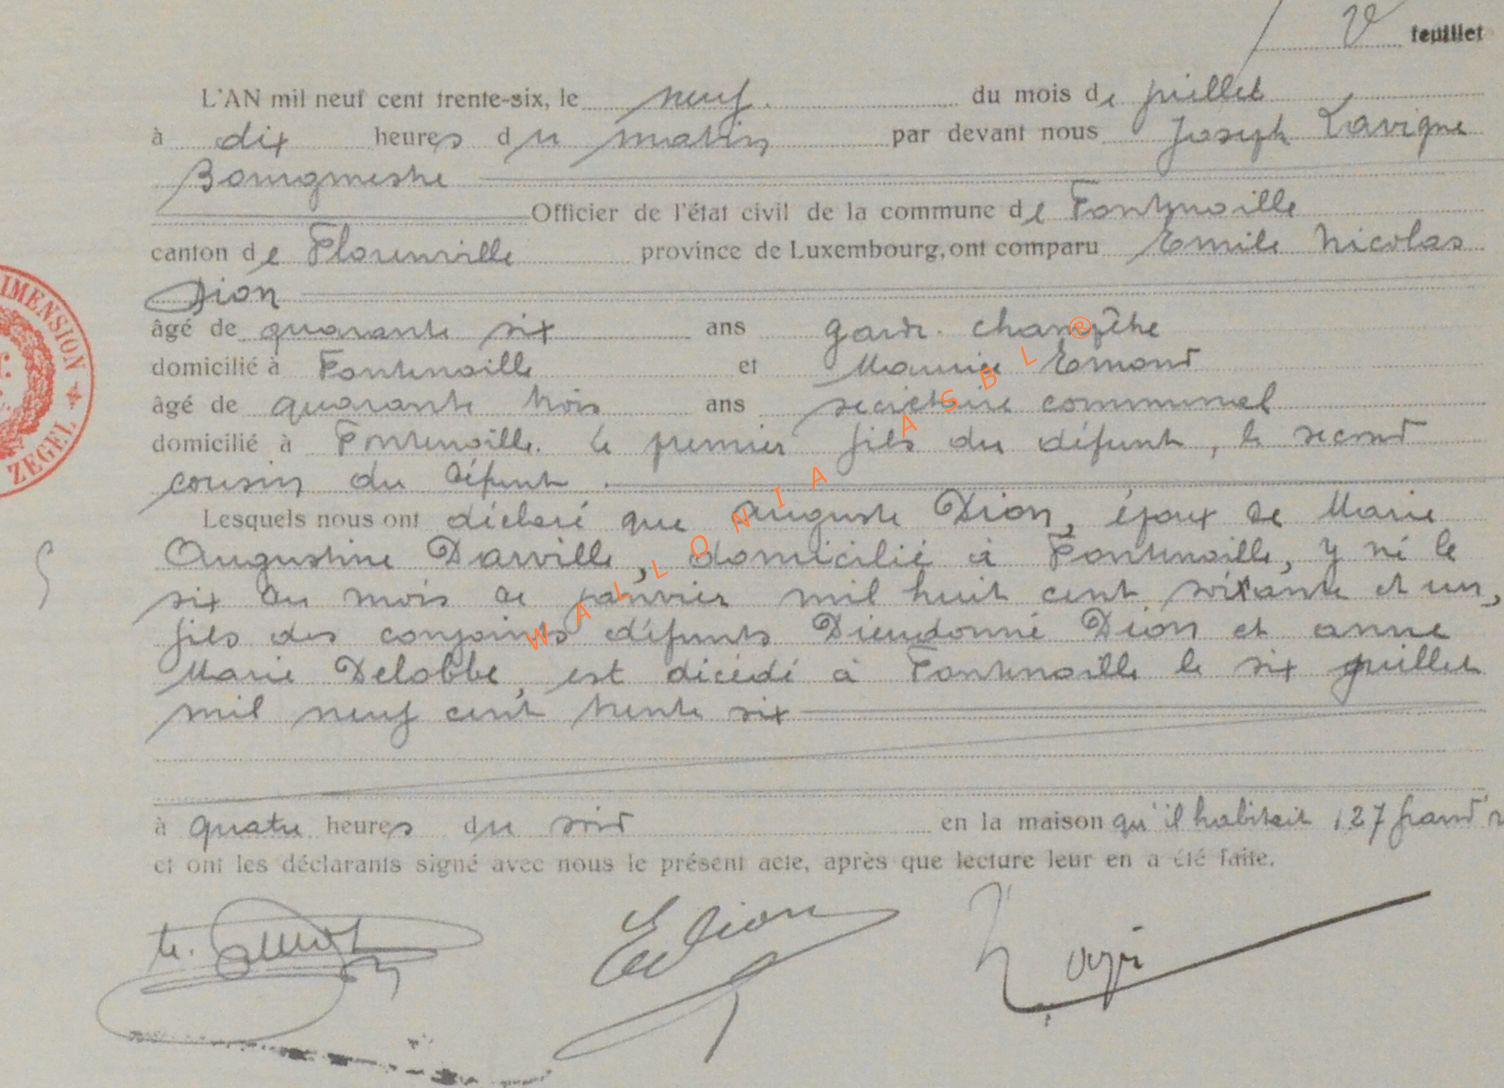 V feuillet
L'AN mil neuf cent trente-six, le neuf. du mois de juillet
à dix heures du matin par devant nous Joseph Lavigne
Bourgmestre
Officier de l'état civil de la commune de Fontenoille
canton de Florenville province de Luxembourg, ont comparu Emile Nicolas
Dion
âgé de quarante six ans garde champêtre
domicilié à Fontenoille et Maurice Emond
âgé de quarante trois ans secrétaire communal
domicilié à Fontenoille. le premier fils du défunt, le second
cousin du défunt.
Lesquels nous ont déclaré que Auguste Dion, époux de Marie
Augustine Darville, domicilié à Fontenoille, y né le
six du mois de janvier mil huit cent soixante et un,
fils des conjoints défunts Dieudonné Dion et Anne
Marie Delobbe, est décédé à Fontenoille le six juillet
mil neuf cent trente six
à quatre heures du soir en la maison qu'il habitait, 127 grand'r
et ont les déclarants signé avec nous le présent acte, après que lecture leur en a été faite.
EDion
IMENSION
ZEGEL
WALLONIA ASBL ®